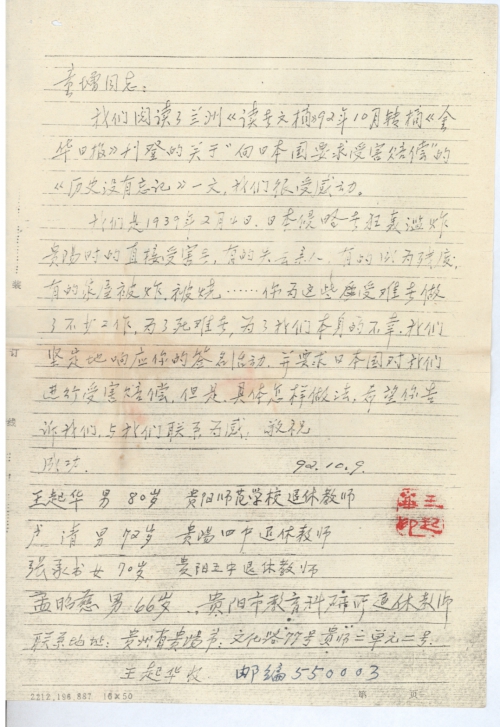 童增同志：
我们阅读了兰州《读者文摘》92年10月转摘《金
华日报》刊登的关于“向日本国要求受害赔偿”的
《历史没有忘记》一文，我们很受感动。
我们是1939年2月4日，日本侵略者狂轰滥炸
贵阳时的直接受害者，有的失去亲人，有的身为残废，
有的房屋被炸、被烧……你为这些蒙受难者做
了不少工作，为了死难者，为了我们本身的不幸，我们
坚定地响应你的签名活动，并要求日本国对我们
进行受害赔偿，但是，具体怎样做法，希望你告
诉我们，与我们联系为感。敬祝
成功
92.10.9.
王起华 男 80岁 贵阳师范学校退休教师
王起华印
卢 清 男 72岁 贵阳四中退休教师
张承书 女 70岁 贵阳五中退休教师
孟昭慈 男 66岁 . 贵阳市教育科研所退休教师
联系地址：贵州省贵阳市：文化路77号贵师三单元二号.
王起华收 邮编 550003
装
订
线
2212.196.887 16×50 第 页